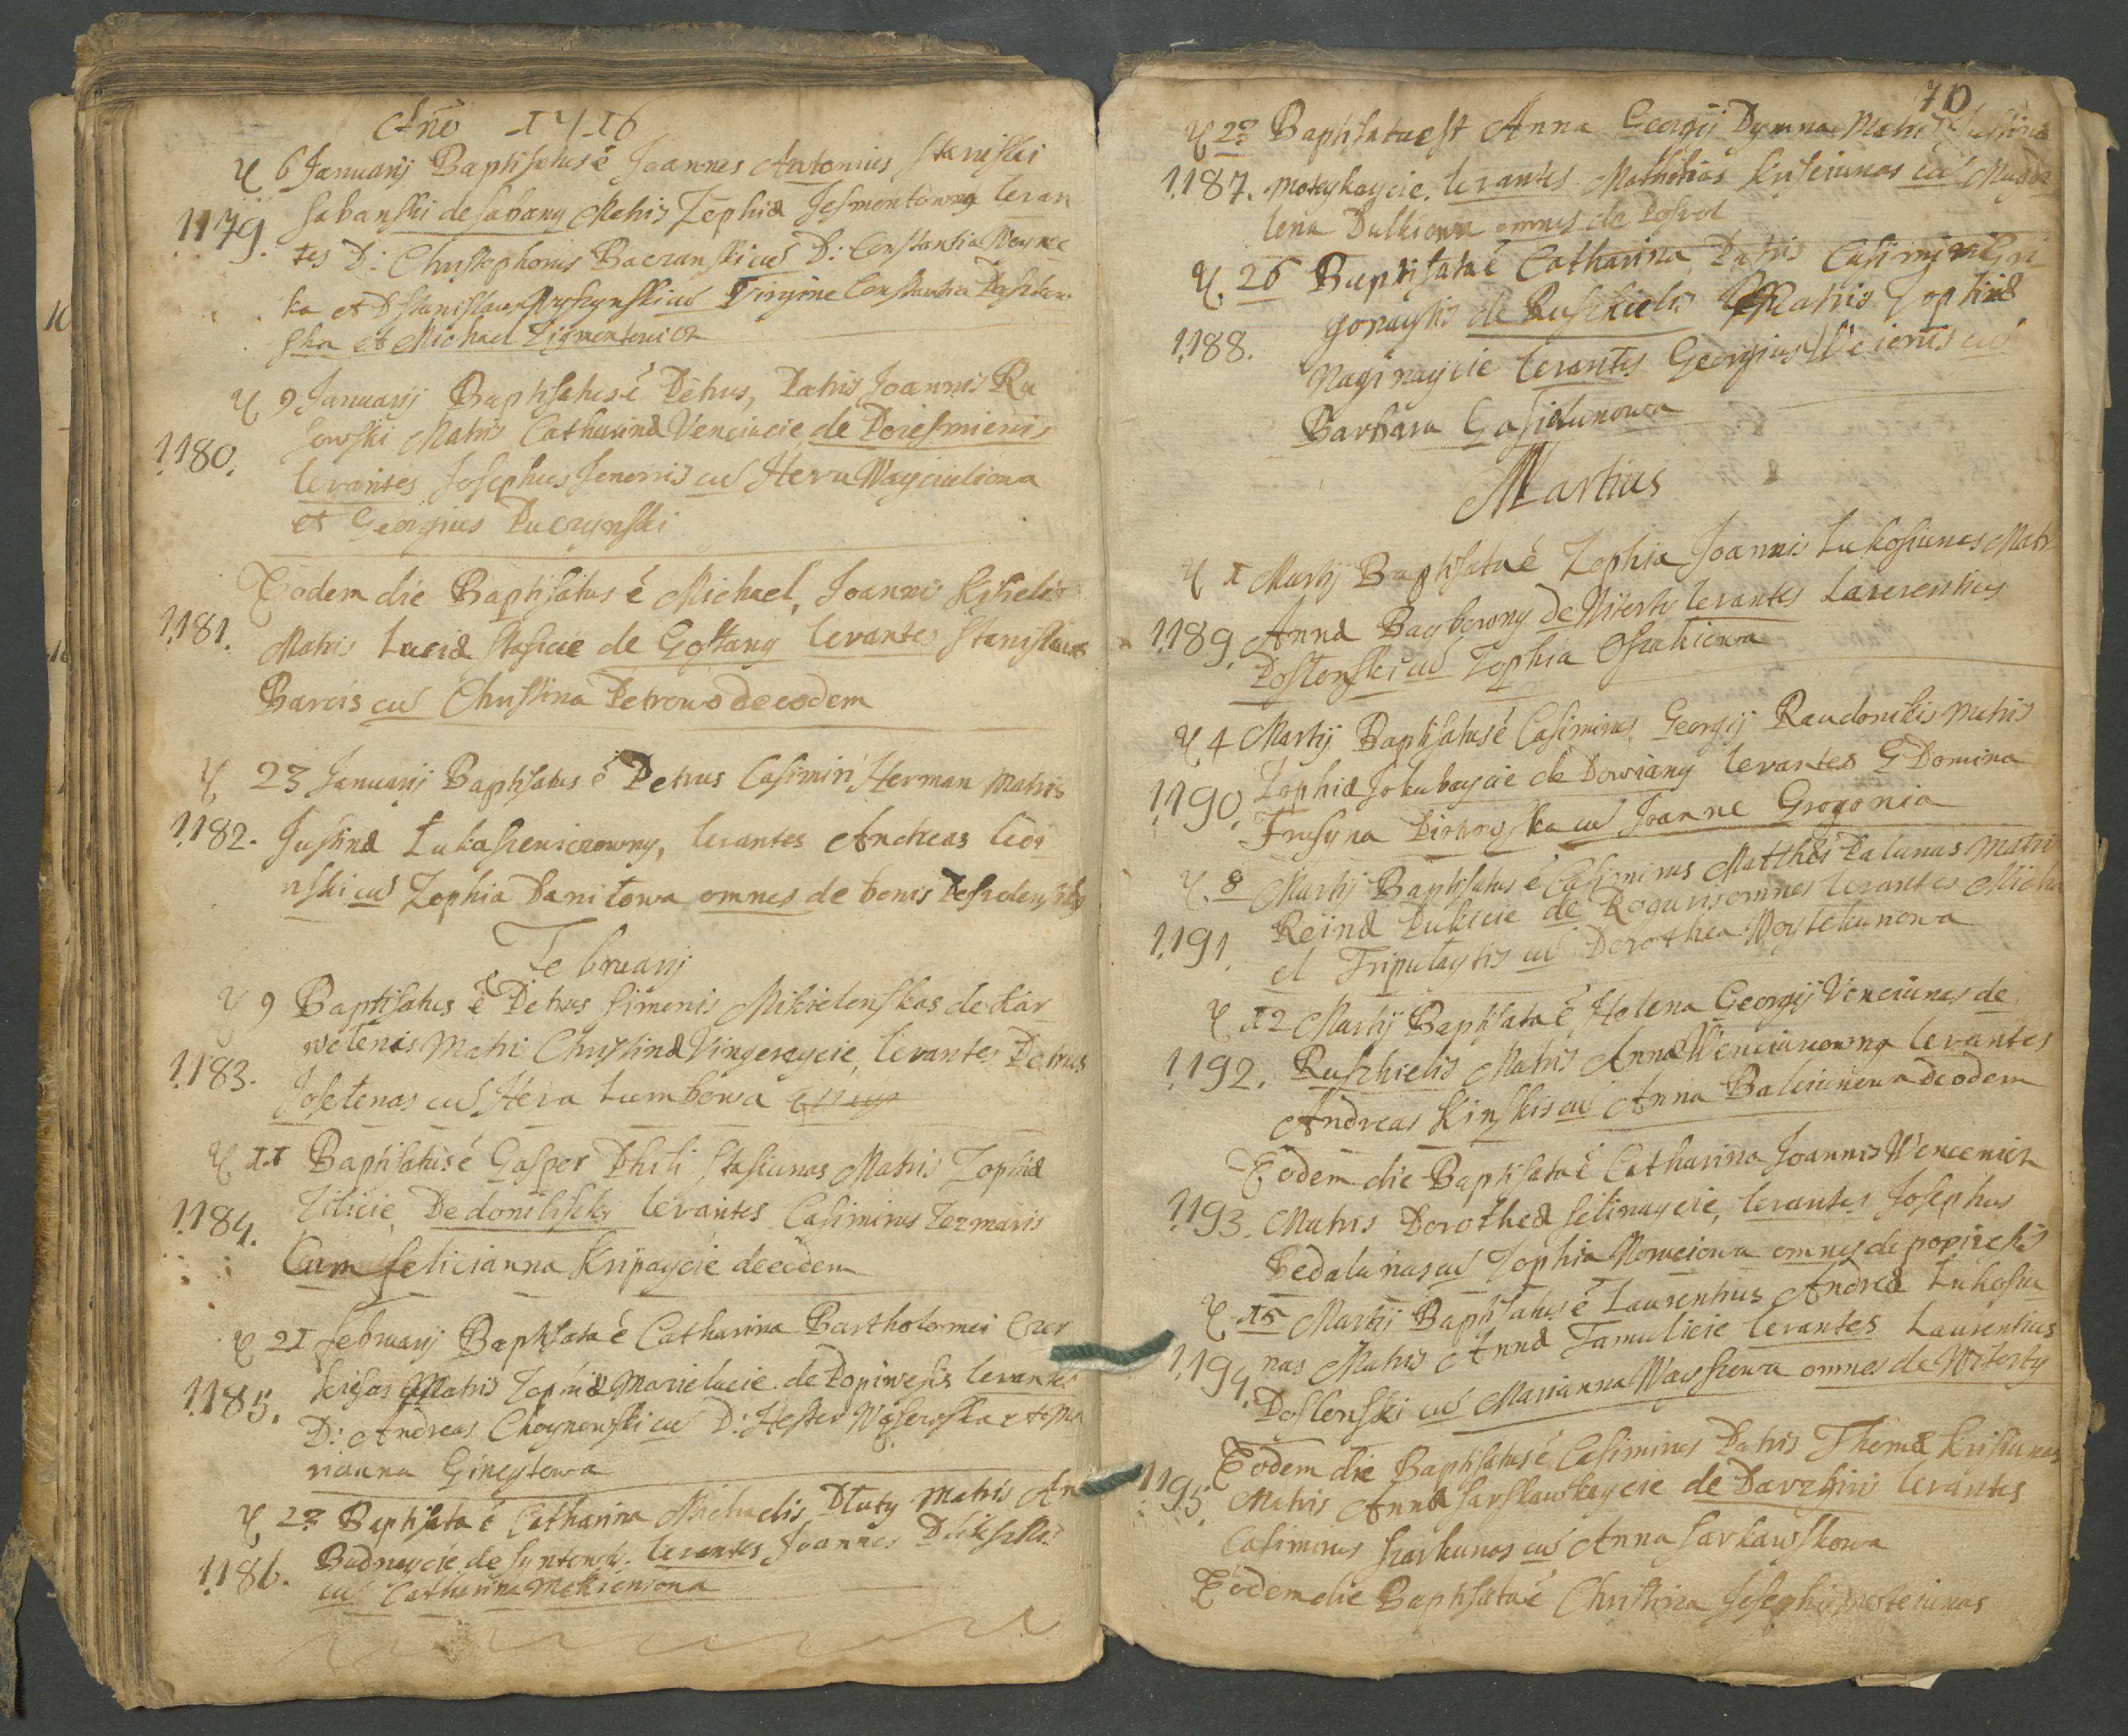 Año 1716
6 Januarij Baptisatus é Joannes Antonius Stanislai
1179. Sabanski de Sabany Matris Zophiæ Jesmontowny levan
tes D: Christophorus Baczanski cū D: Constantia
ka et D Stanislaus cū Virgine Constantia
ska et Michael Zigmontowicz
9 Januarij Baptisatus é Petrus, Patris Joannis Ra
1180. sowski Matris Catharinæ Venciucie de Poiesmienis
levantes Josephus Jenonis cū Heva Wayciuliowa
et Georgius Puczynski
Eodem die Baptisatus é Michael, Joannis Kiselis
1181. Matris Luciæ Stasiucie de Gostany levantes Stanislaus
Barcis cū Christina Petrowa de eodem
23 Januarij Baptisatus é Petrus Casimiri Herman Matris
1182. Justinæ Łukaszewiczowny, levantes Andreas
nski cū Zophia Daniłowa omnes de bonis
Februarij
9 Baptisatus é Petrus Simonis Mikielenskas de
1183. Matris Christinæ Vingeraycie, levantes Petrus
Josetenas cū Heva Lumbowa
11 Baptisatus é Gasper Phili Stasiunas Matris Zophiæ
1184. Zilicie levantes Casimirus Zezmaris
Cum feliciana Kripaycie de eodem
21 februarij Baptisata é Catharina Bartholomei Czer
1185. Matris Zophiæ Marielucie de Popiwesis levantes
D: Andreas Choynowski cū D: Hester Wąsowska et Ma
rianna Gineytowa
22 Baptisata é Catharina Michaelis Dłuty Matris An
1186. Budnaycie de levantes Joannes
cū Catharina
70
22 Baptisata est Anna Georgij Dymna Matris Justinæ
1187. Moteykaycie. levantes Mathias Krisciunas cū Magda
lena Dulkiowa omnes de Posvol
26 Baptisata é Catharina Patris Casimiri Gri
1188. gonaytis de Ruszkielis Matris Zophiæ
Naginaycie levantes Georgius cū
Barbara Gasiulunowa
Martius
1 Martij Baptisata é Zophia Joannis Lukosiunas Matr
1189. Annæ Baybowny de Witorty levantes Laurentius
Postonski cū Zophia
4 Martij Baptisatus é Casimirus Georgij Raudonikis Matris
1190. Zophiæ Jokubaycie de Dowiany levantes G Domina
Frusyna Piotrowska cū Joanne Grogonia
8 Martij Baptisatus é Casimirus Matthei Palunas Matris
1191. Reinæ Pukicie de Roguvis omnes levantes Micha
el Triputaytis cū Dorothea Woytekunowa
12 Martij Baptisata é Helena Georgij Venciunas de
1192. Ruszkielis Matris Annæ Wenciunowna levantes
Andreas Kinskis cū Anna Balciunowa de eodem
Eodem die Baptisata é Catharina Joannis Wencewicz
1193. Matris Dorotheæ Selinaycie, levantes Josephus
Bedalunas cū Zophia Noweiowa omnes de
15 Martij Baptisatus é Laurentius Andreæ Lukosiu
1194. nas Matris Annæ Tamulicie levantes Laurentius
Doslenski cū Marianna omnes de Witorty
Eodem die Baptisatus é Casimirus Patris Thomæ Krisiunas
1195. Matris Annæ Sarskawskaycie de levantes
Casimirus Szarkunas cū Anna Sarkawskowa
Eodem die Baptisata é Christina Josephi